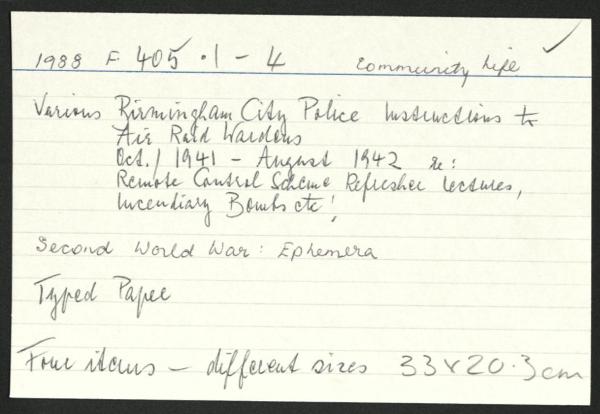 1988 F 405.1 - 4 Community Life ✓
Various Birmingham City Police Instructions to
Air Raid Wardens
Oct./ 1941 - August 1942 re:
Remote Control Scheme Refresher lectures,
Incendiary Bombs etc!
Second World War: Ephemera
Typed Paper
Four items - different sizes 33 x 20.3cm